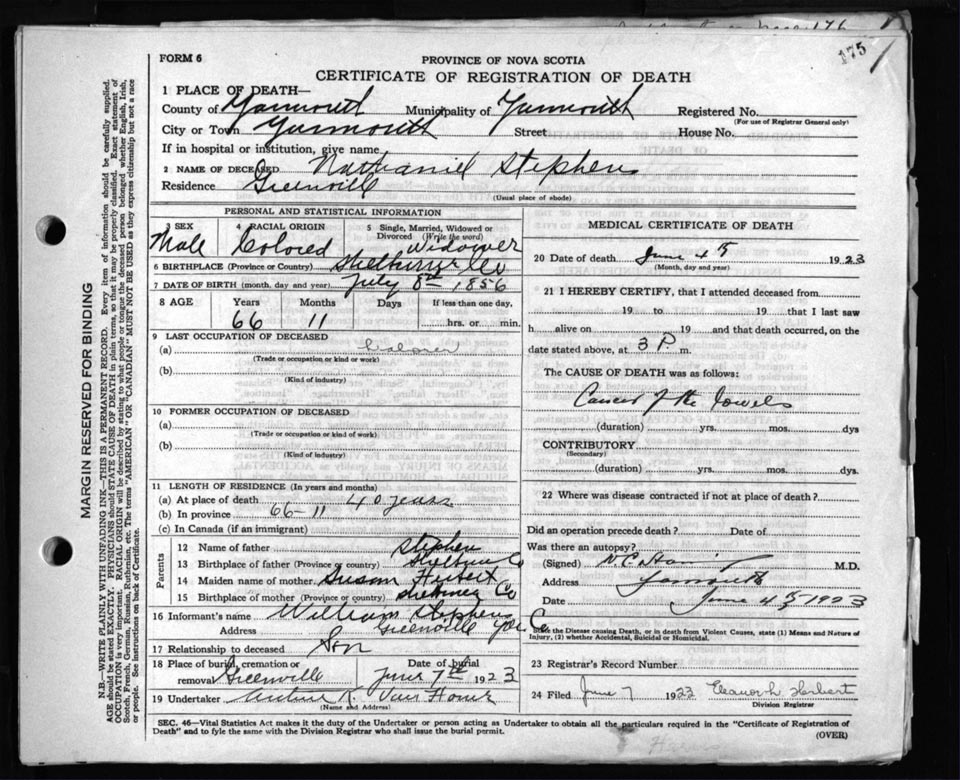 175
FORM 6
PROVINCE OF NOVA SCOTIA
CERTIFICATE OF REGISTRATION OF DEATH
1 PLACE OF DEATH—
County of Yarmouth Municipality of Yarmouth Registered No.
(For use of Registrar General only)
City or Town Yarmouth Street House No.
If in hospital or institution, give name
2 NAME OF DECEASED Nathaniel Stephens
Residence Greenville
(Usual place of abode)
PERSONAL AND STATISTICAL INFORMATION
3 SEX 4 RACIAL ORIGIN 5 Single, Married, Widowed or
Divorced (Write the word)
Male Colored Widower
6 BIRTHPLACE (Province or Country) Shelburne Co
7 DATE OF BIRTH (month, day and year) July 8th 1856
8 AGE Years Months Days If less than one day,
66 11 hrs. or min.
9 LAST OCCUPATION OF DECEASED
(a)
(Trade or occupation or kind or work)
(b)
(Kind of industry)
10 FORMER OCCUPATION OF DECEASED
(a)
(Trade or occupation or kind of work)
(b)
(Kind of industry)
11 LENGTH OF RESIDENCE (In years and months)
(a) At place of death 40 years
(b) In province 66-11
(c) In Canada (if an immigrant)
Parents
12 Name of father Stephen
13 Birthplace of father (Province or Country) Shelburne Co
14 Maiden name of mother Susan
15 Birthplace of mother (Province or country) Shelburne Co
16 Informant's name William Stephens
Address Greenville Yar. Co
17 Relationship to deceased Son
18 Place of burial, cremation or Date of burial
removal Greenville June 7th 1923
19 Undertaker Arthur R. Van Horne
(Name and Address)
MEDICAL CERTIFICATE OF DEATH
20 Date of death June 4th 1923
(Month, day and year)
21 I HEREBY CERTIFY, that I attended deceased from
19 to 19 that I last saw
h alive on 19 and that death occurred, on the
date stated above, at 3 P. m.
The CAUSE OF DEATH was as follows:
Cancer of the bowels
(duration) yrs. mos. dys
CONTRIBUTORY
(Secondary)
(duration) yrs. mos. dys.
22 Where was disease contracted if not at place of death?
Did an operation precede death? Date of
Was there an autopsy?
(Signed) M.D.
Address Yarmouth
Date June 4th 1923
State the Disease causing Death, or in death from Violent Causes, state (1) Means and Nature of
Injury, (2) whether Accidental, Suicidal or Homicidal.
23 Registrar's Record Number
24 Filed June 7 1923 Eleanor L. Herbert
Division Registrar
SEC. 46—Vital Statistics Act makes it the duty of the Undertaker or person acting as Undertaker to obtain all the particulars required in the "Certificate of Registration of
Death" and to fyle the same with the Division Registrar who shall issue the burial permit.
(OVER)
MARGIN RESERVED FOR BINDING
N.B.—WRITE PLAINLY, WITH UNFADING INK.—THIS IS A PERMANENT RECORD. Every item of information should be carefully supplied.
AGE should be stated EXACTLY. PHYSICIANS should STATE CAUSE OF DEATH in plain terms, so that it may be properly classified. Exact statement of
OCCUPATION is very important. RACIAL ORIGIN will be described by stating to what people or tongue the deceased person belonged whether English, Irish,
Scotch, French, German, Russian, Ruthenian, etc. The terms "AMERICAN" OR "CANADIAN" MUST NOT BE USED as they express citizenship but not a race
or people. See instructions on back of Certificate.